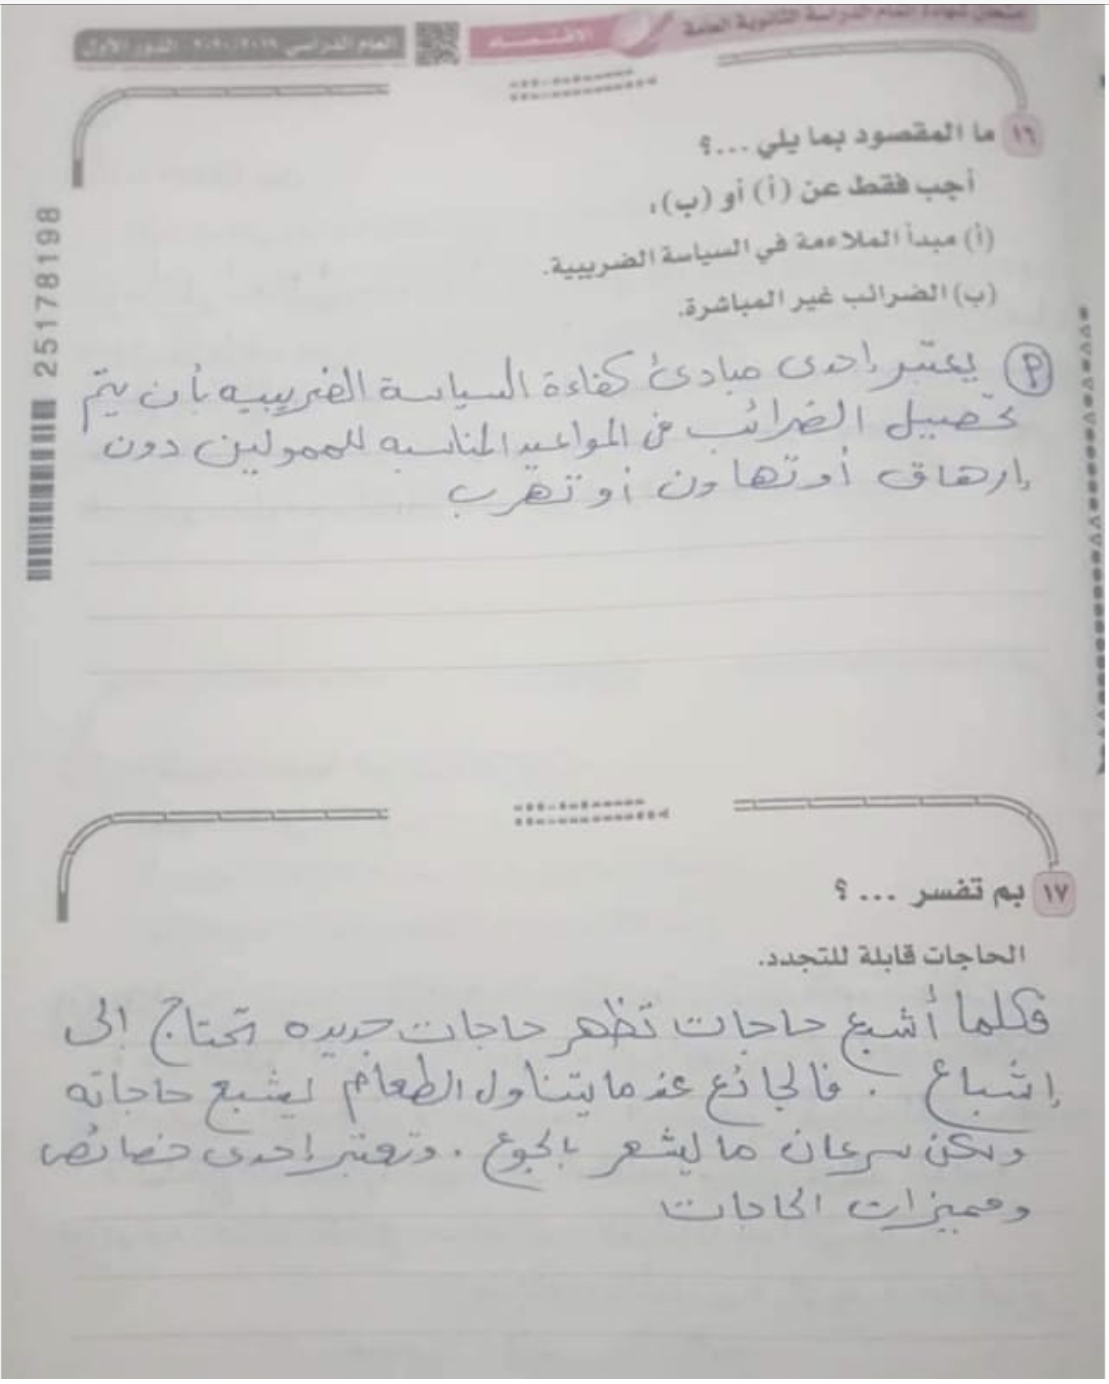 امتحان شهادة إتمام الدراسة الثانوية العامة
الاقتصاد
العام الدراسي ٢٠١٩/٢٠٢٠ - الدور الأول
١٦ ما المقصود بما يلي ...؟
أجب فقط عن (أ) أو (ب):
(أ) مبدأ الملاءمة في السياسة الضريبية.
(ب) الضرائب غير المباشرة.
25178198
P يعتبر إحدى مبادئ كفاءة السياسة الضريبيه بأن يتم
تحصيل الضرائب في المواعيد المناسبه للممولين دون
إرهاق أو تهاون أو تهرب
١٧ بم تفسر ... ؟
الحاجات قابلة للتجدد.
فكلما أشبع حاجات تظهر حاجات جديده تحتاج إلى
إشباع . فالجائع عندما يتناول الطعام ليشبع حاجاته
ولكن سرعان ما ليشعر بالجوع . وتعتبر إحدى خصائص
ومميزات الحاجات